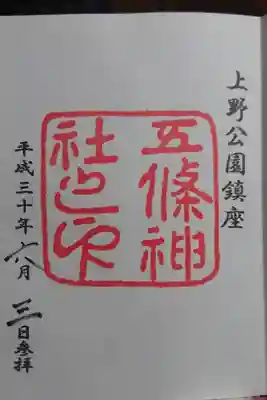 上野公園鎮座
五條神
社之印
平成三十年六月三日参拝